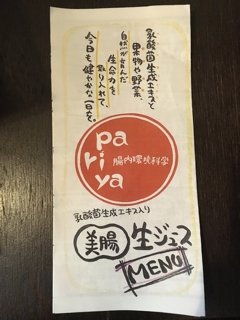 乳酸菌生成エキスと
果物や野菜、
自然が育んだ
生命力を
取り入れて、
今日も健やかな一日を。
pa
ri
ya
腸内環境科学
乳酸菌生成エキス入り
美腸
生ジュース
MENU